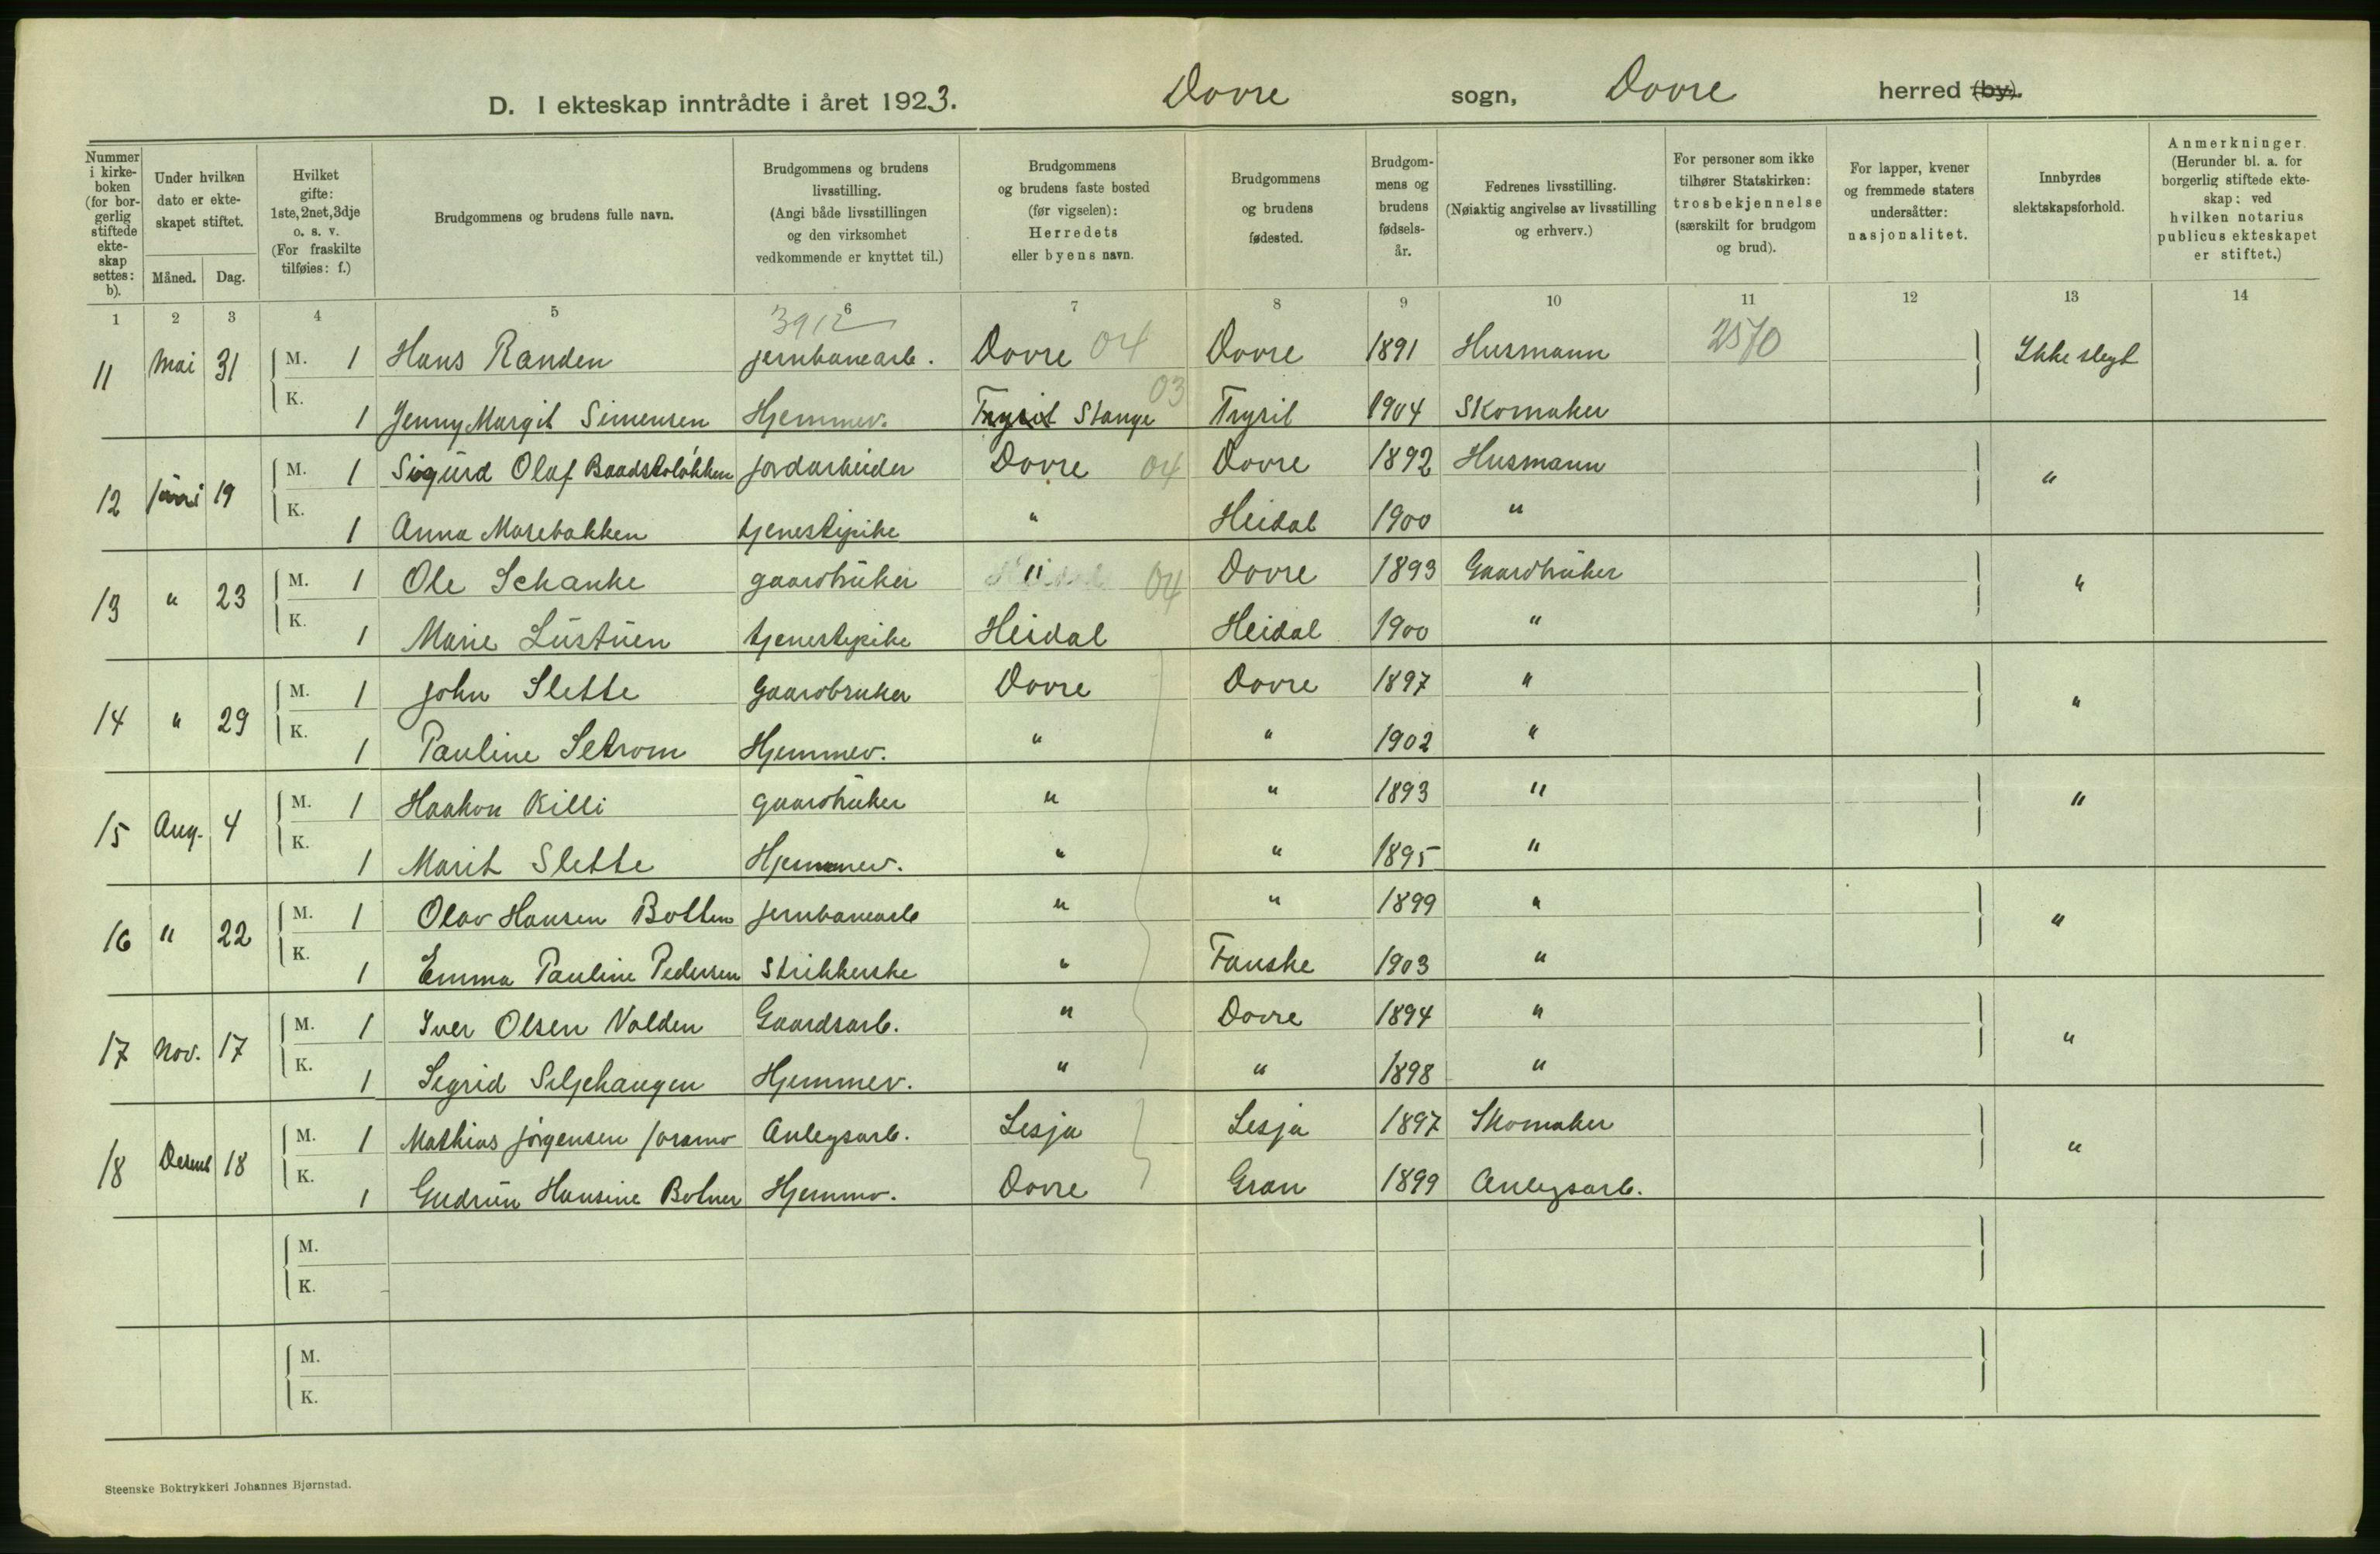 D. I ekteskap inntrådte i året 1923. Dovre sogn, Dovre herred (by).
Nummer i kirke-boken (for bor-gerlig stiftede ekte-skap settes: b).
Under hvilken dato er ekte-skapet stiftet.
Måned. Dag.
Hvilket gifte: 1ste, 2net, 3dje o. s. v. (For fraskilte tilføies: f.)
Brudgommens og brudens fulle navn.
Brudgommens og brudens livsstilling. (Angi både livsstillingen og den virksomhet vedkommende er knyttet til.)
Brudgommens og brudens faste bosted (før vigselen): Herredets eller byens navn.
Brudgommens og brudens fødested.
Brudgom-mens og brudens fødsels-år.
Fedrenes livsstilling. (Nøiaktig angivelse av livsstilling og erhverv.)
For personer som ikke tilhører Statskirken: trosbekjennelse (særskilt for brudgom og brud).
For lapper, kvener og fremmede staters undersåtter: nasjonalitet.
Innbyrdes slektskapsforhold.
Anmerkninger. (Herunder bl. a. for borgerlig stiftede ekte-skap: ved hvilken notarius publicus ekteskapet er stiftet.)
1 2 3 4 5 6 7 8 9 10 11 12 13 14
3912 2570
11 Mai 31 M. 1 Hans Randen jernbanearb. Dovre 04 Dovre 1891 Husmann Ikke slegt
K. 1 Jenny Margit Simensen Hjemmev. Trysil Stange 03 Trysil 1904 Skomaker
12 Juni 19 M. 1 Sigurd Olaf Baadstoløkken jordarbeider Dovre 04 Dovre 1892 Husmann "
K. 1 Anna Morebakken tjenestepike " Heidal 1900 "
13 " 23 M. 1 Ole Schanke gaardbruker " 04 Dovre 1893 Gaardbruker "
K. 1 Marie Lustuen tjenestepike Heidal Heidal 1900 "
14 " 29 M. 1 John Slette Gaardbruker Dovre Dovre 1897 " "
K. 1 Pauline Setrom Hjemmev. " " 1902 "
15 Aug. 4 M. 1 Haakon Killi gaardbruker " " 1893 " "
K. 1 Marit Slette Hjemmev. " " 1895 "
16 " 22 M. 1 Olav Hansen Botten jernbanearb " " 1899 " "
K. 1 Emma Pauline Pedersen Strikkerske " Fauske 1903 "
17 Nov. 17 M. 1 Iver Olsen Volden Gaardsarb. " Dovre 1894 " "
K. 1 Sigrid Seljehaugen Hjemmev. " " 1898 "
18 Desemb 18 M. 1 Mathias Jørgensen Joramo Anlegsarb. Lesja Lesja 1897 Skomaker "
K. 1 Gudrun Hansine Bolner Hjemmv. Dovre Gran 1899 Anlegsarb.
M.
K.
M.
K.
Steenske Boktrykkeri Johannes Bjørnstad.